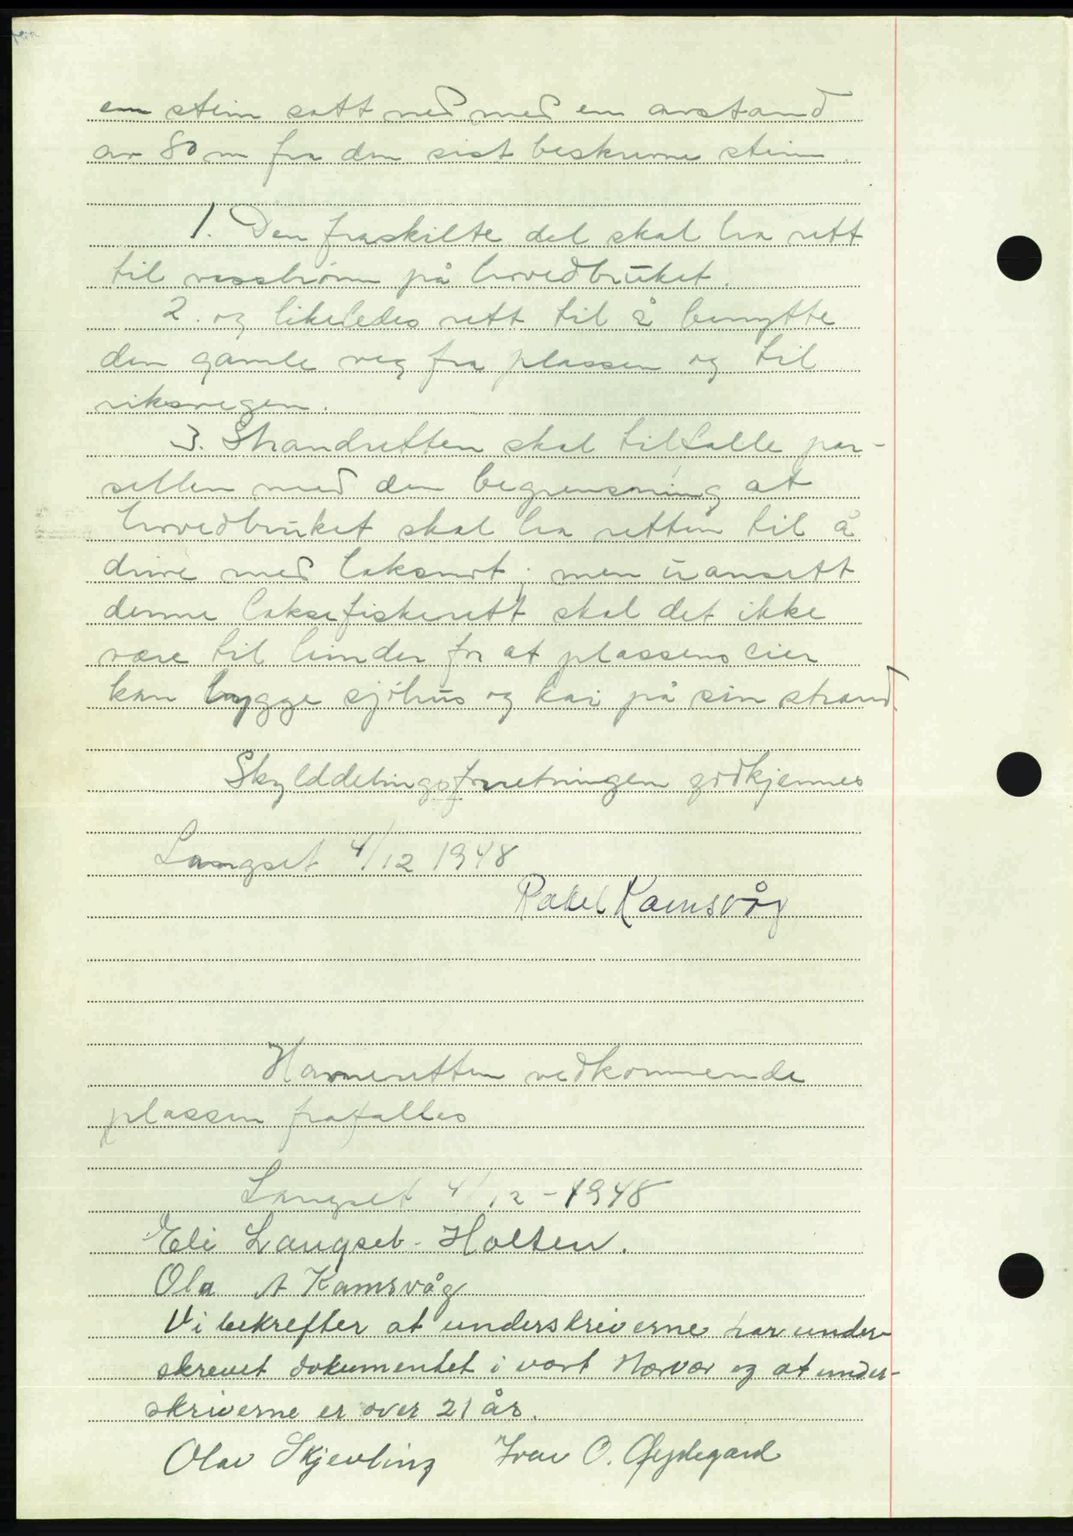 en stein satt ned med en avstand
av 80 m fra den sist beskrivne stein.
1. Den fraskilte del skal ha rett
til vassbrønn på hovedbruket.
2. og likeledes rett til å benytte
den gamle veg fra plassen og til
riksvegen.
3. Strandretten skal tilfalle par-
sellen med den begrensning at
hovedbruket skal ha retten til å
drive med laksnot; men uansett
denne laksefiskerett skal det ikke
være til hinder for at plassens eier
kan bygge sjøhus og kai på sin strand.
Skylddelingsforretningen godkjennes
Langset 4/12 1948
Rakel Kamsvåg
Havneretten vedkommende
plassen frafalles
Langset 4/12-1948
Eli Langset-Holten.
Ola A Kamsvåg
Vi bekrefter at underskriverne har under-
skrevet dokumentet i vort nærvær og at under-
skriverne er over 21 år.
Olav Skjevling Ivar O. Øydegard